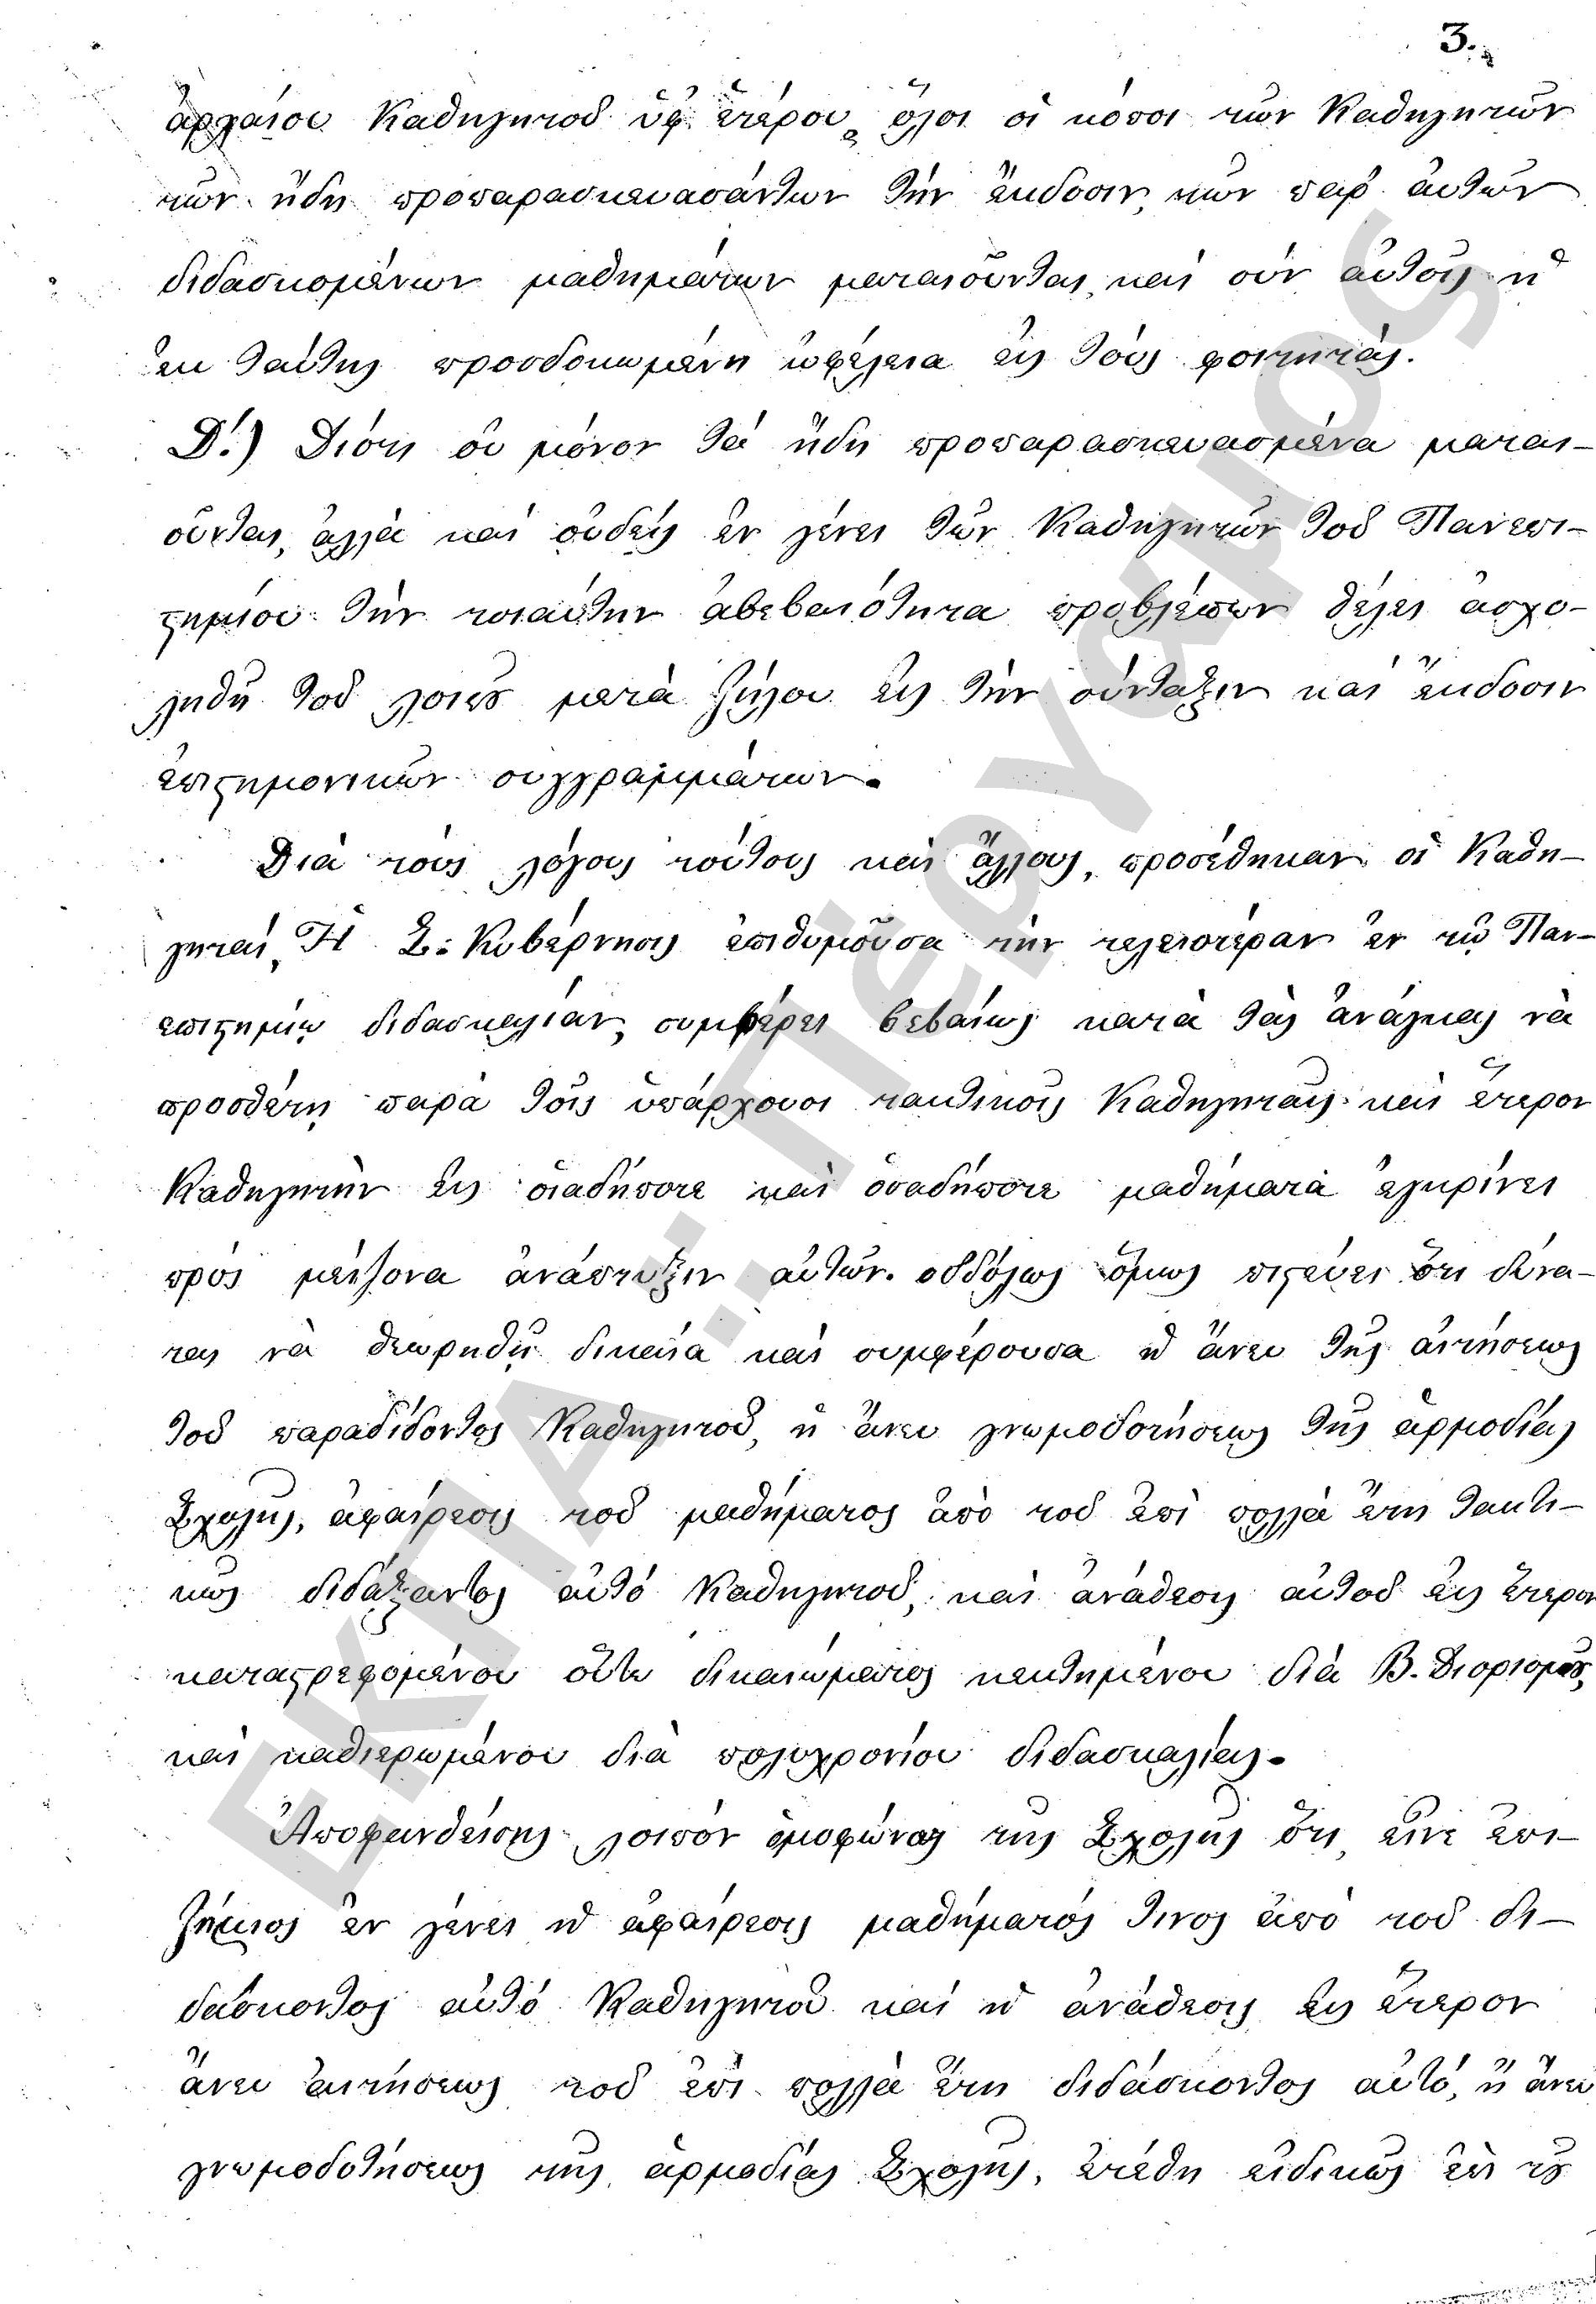 3.
ἀρχαίου Καθηγητοῦ ὑφ' ἑτέρου, ὅλοι οἱ κόποι τῶν Καθηγητῶν
τῶν ἤδη προπαρασκευασάντων τὴν ἔκδοσιν τῶν παρ' αὐτῶν
διδασκομένων μαθημάτων ματαιοῦνται, καὶ σὺν αὐτοῖς ἡ
ἐκ ταύτης προσδοκωμένη ὠφέλεια εἰς τοὺς φοιτητάς.
Δ΄.) Διότι οὐ μόνον τὰ ἤδη προπαρασκευασμένα μαται-
οῦνται, ἀλλὰ καὶ οὐδεὶς ἐν γένει τῶν Καθηγητῶν τοῦ Πανεπι-
στημίου τὴν τοιαύτην ἀβεβαιότητα προβλέπων θέλει ἀσχο-
ληθῆ τοῦ λοιποῦ μετὰ ζήλου εἰς τὴν σύνταξιν καὶ ἔκδοσιν
ἐπιστημονικῶν συγγραμμάτων.
Διὰ τοὺς λόγους τούτους καὶ ἄλλους, προσέθηκαν οἱ Καθη-
γηταί, Ἡ Σ: Κυβέρνησις ἐπιθυμοῦσα τὴν τελειοτέραν ἐν τῷ Παν-
επιστημίῳ διδασκαλίαν, συμφέρει βεβαίως κατὰ τὰς ἀνάγκας νὰ
προσθέτῃ παρὰ τοῖς ὑπάρχουσι τακτικοῖς Καθηγηταῖς καὶ ἕτερον
Καθηγητὴν εἰς οἱαδήποτε καὶ ὁσαδήποτε μαθήματα ἐγκρίνει
πρὸς μείζονα ἀνάπτυξιν αὐτῶν. οὐδόλως ὅμως πιστεύει ὅτι δύνα-
ται νὰ θεωρηθῇ δικαία καὶ συμφέρουσα ἡ ἄνευ τῆς αἰτήσεως
τοῦ παραδίδοντος Καθηγητοῦ, ἢ ἄνευ γνωμοδοτήσεως τῆς ἁρμοδίας
Σχολῆς, ἀφαίρεσις τοῦ μαθήματος ἀπὸ τοῦ ἐπὶ πολλὰ ἔτη τακτι-
κῶς διδάξαντος αὐτὸ Καθηγητοῦ, καὶ ἀνάθεσις αὐτοῦ εἰς ἕτερον
καταστρεφομένου οὕτω δικαιώματος κεκτημένου διὰ Β. Διορισμοῦ,
καὶ καθιερωμένου διὰ πολυχρονίου διδασκαλίας.
Ἀποφανθείσης λοιπὸν ὁμοφώνως τῆς Σχολῆς ὅτι εἶνε ἐπι-
ζήμιος ἐν γένει ἡ ἀφαίρεσις μαθήματός τινος ἀπὸ τοῦ δι-
δάσκοντος αὐτὸ Καθηγητοῦ καὶ ἡ ἀνάθεσις εἰς ἕτερον
ἄνευ αἰτήσεως τοῦ ἐπὶ πολλὰ ἔτη διδάσκοντος αὐτό, ἢ ἄνευ
γνωμοδοτήσεως τῆς ἁρμοδίας Σχολῆς, ἐτέθη εἰδικῶς ἐπὶ τοῦ
ΕΚΠΑ: Πέργαμος